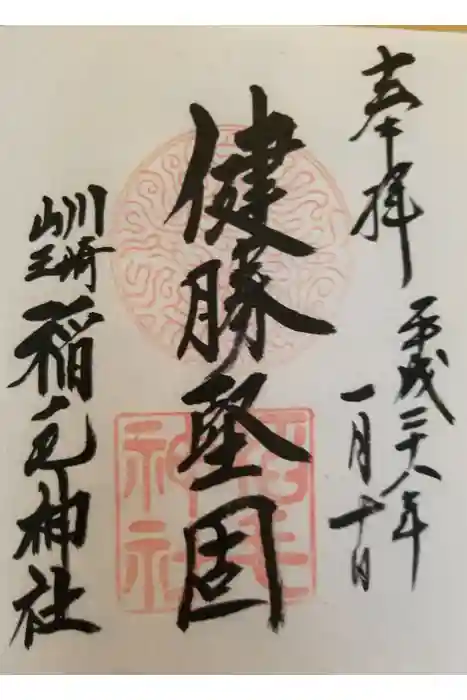 奉拝
平成二十八年
一月十日
健勝堅固
川崎
山王
稲毛神社
稲毛神社